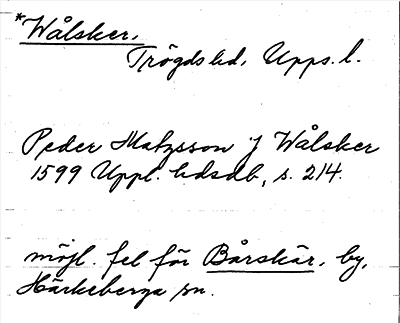 *Wålsker,
Trögds hd, Upps. l.
Peder Matzsson j Wålsker
1599 Uppl. hdsdb, s. 214.
möjl. fel för Bårskär, by,
Härkeberga sn.